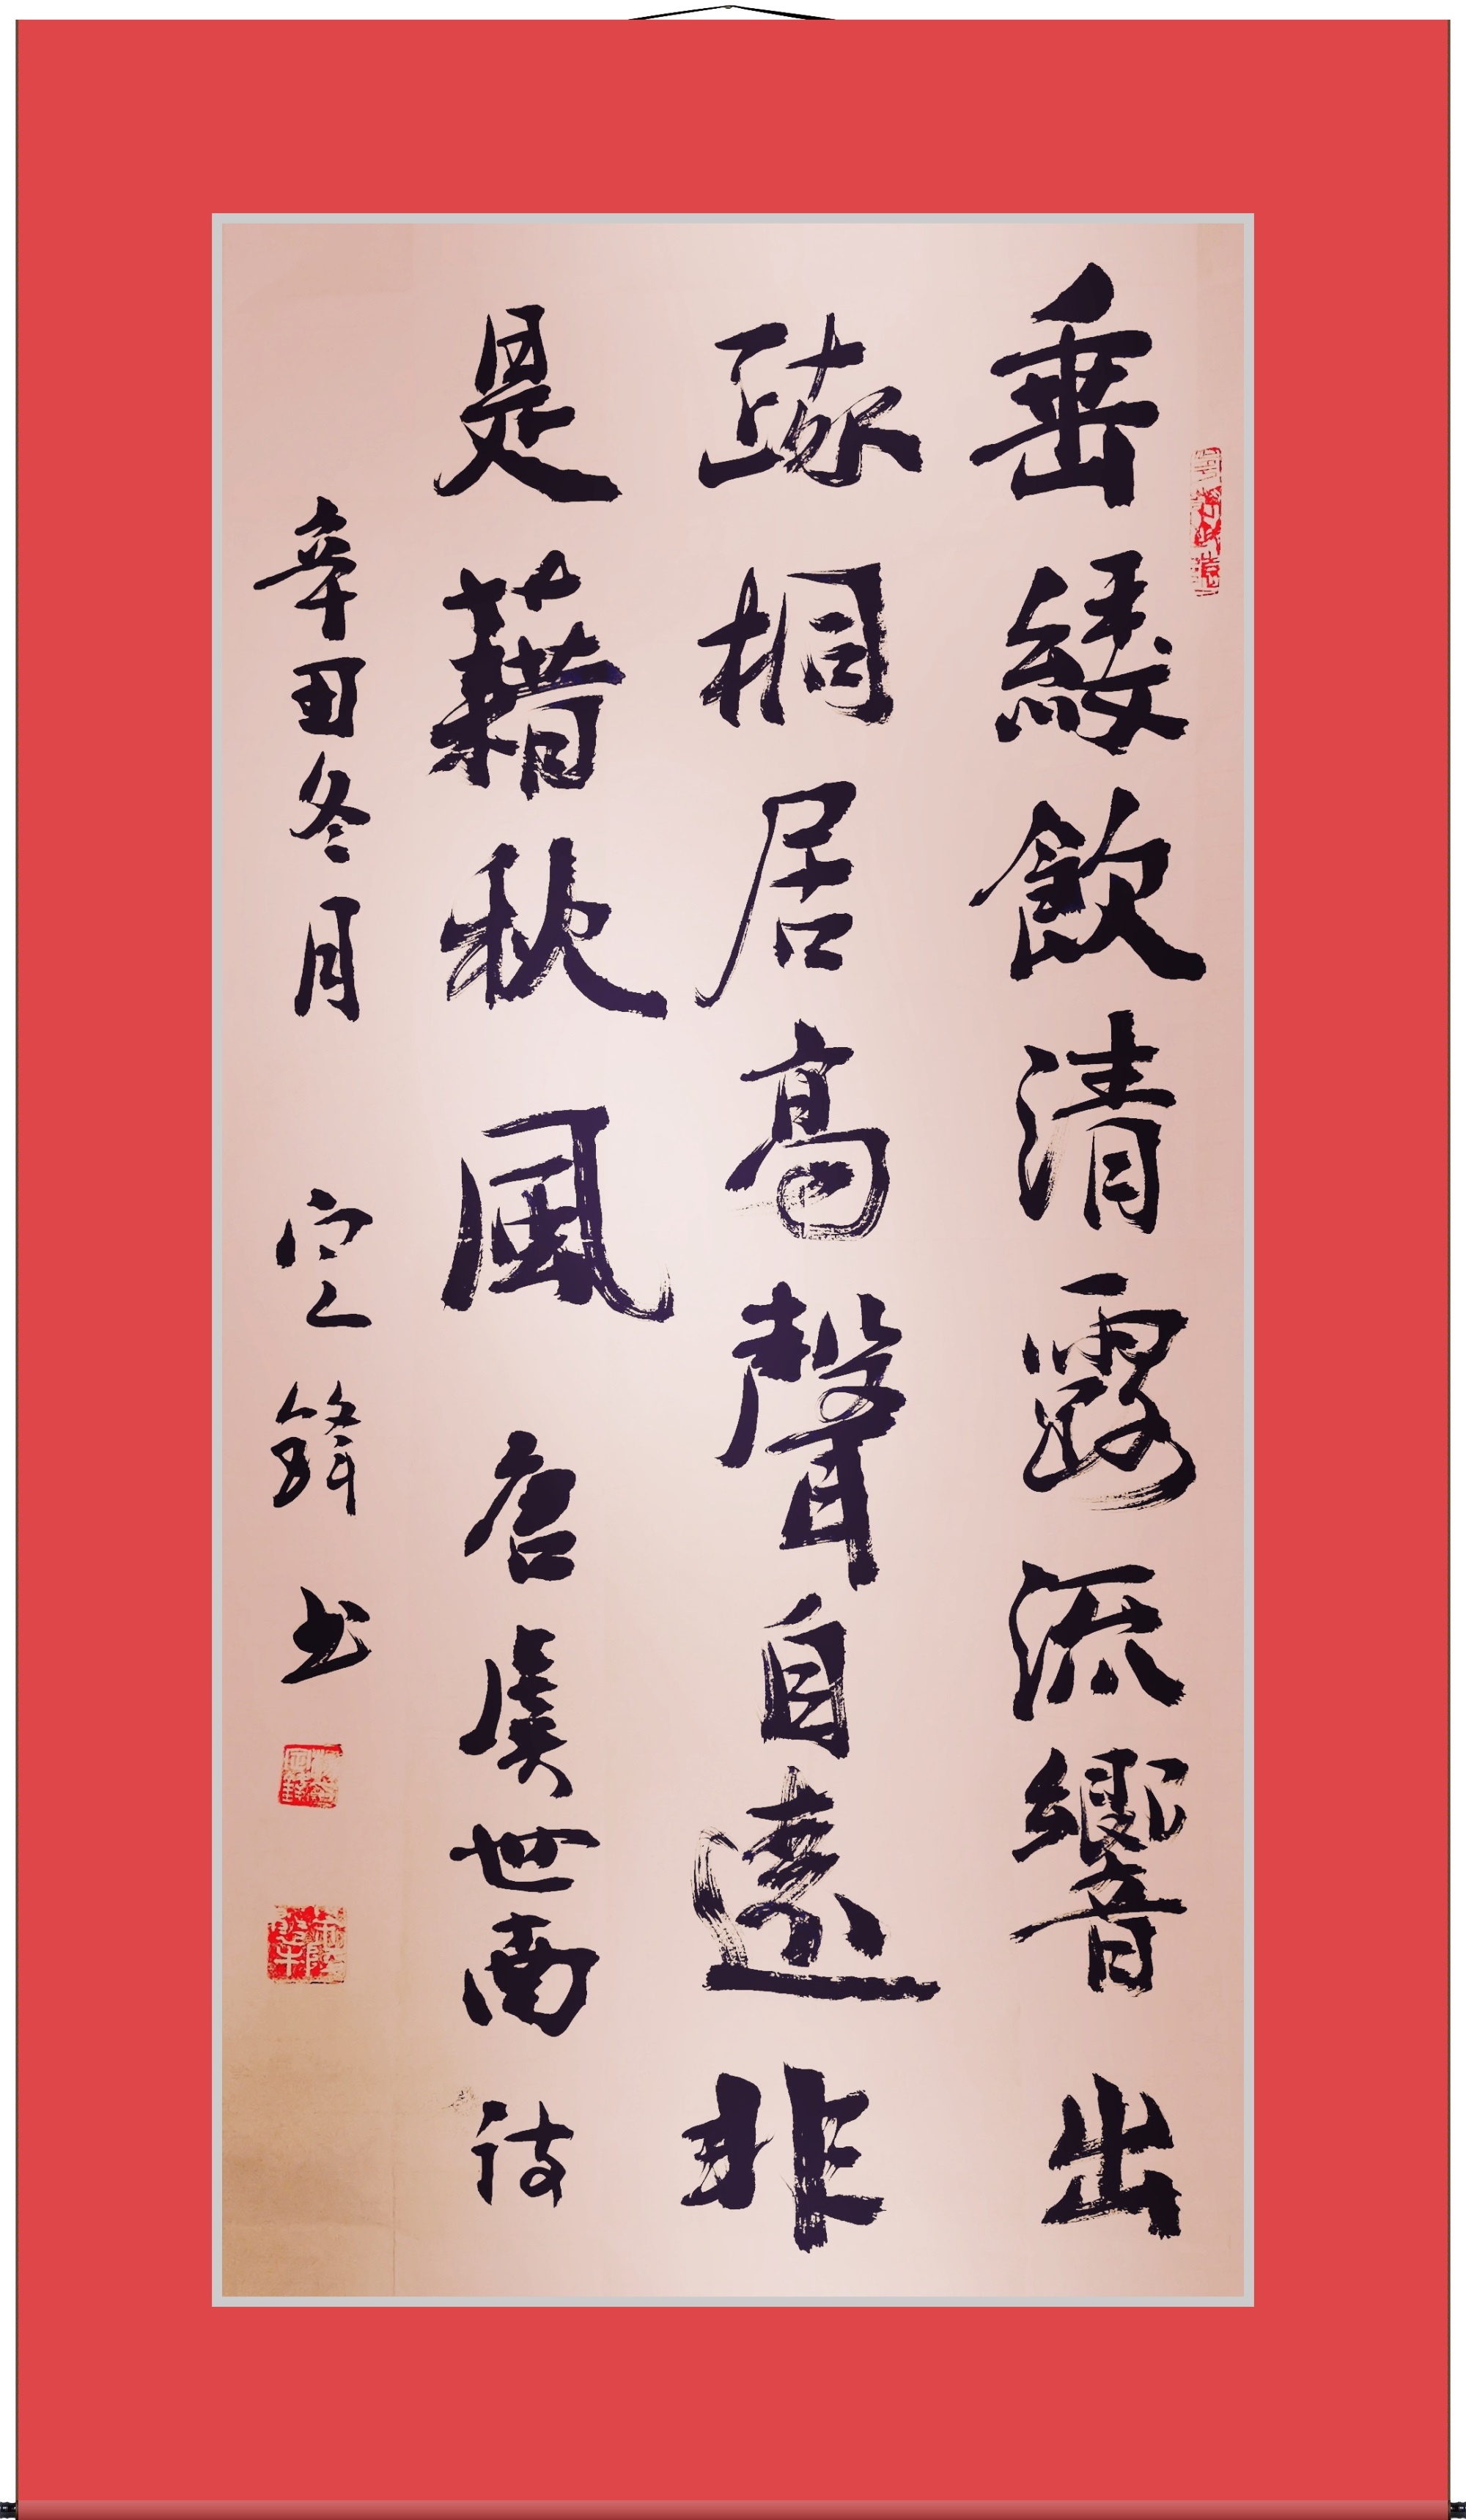 垂緌飲清露流響出
疎桐居高聲自遠非
是藉秋風 唐虞世南詩
辛丑冬月 鋒书